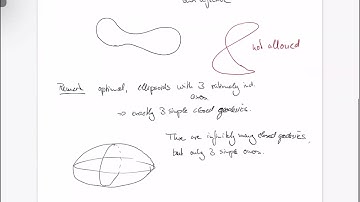 not allowed
Remark optimal, ellipsoids with 3
axes
→ exactly 3 simple closed geodesics.
There are infinitely many closed geodesics,
but only 3 simple ones.